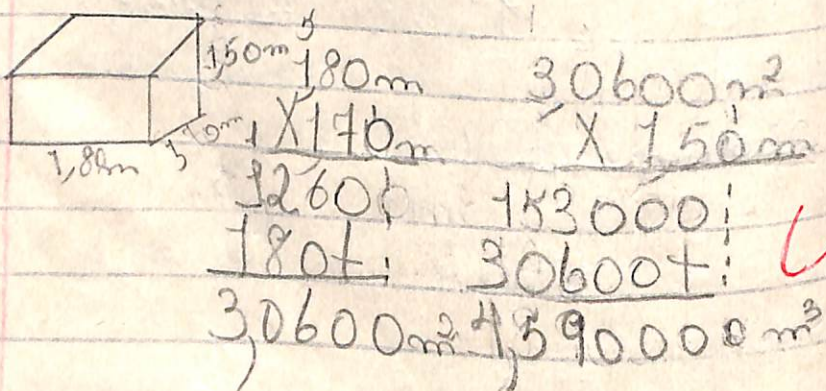 1,50m
1,80m
1,70m
5
1,80m
X 1,70m
12600
180+
3,0600m²
3,0600m²
X 1,50m
153000
30600+
4,590000m³